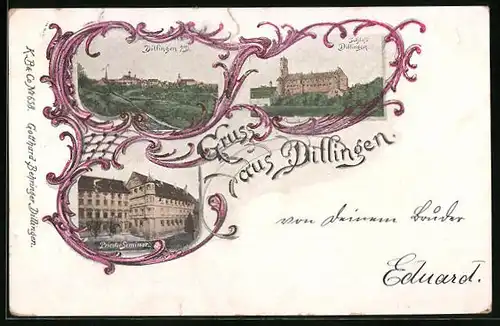 Dillingen
Schloss
Dillingen.
Gruss
aus Dillingen.
Priester Seminar.
von Deinem Bruder
Eduard.
K.B.&Co. No 658. Gotthard Behringer, Dillingen.